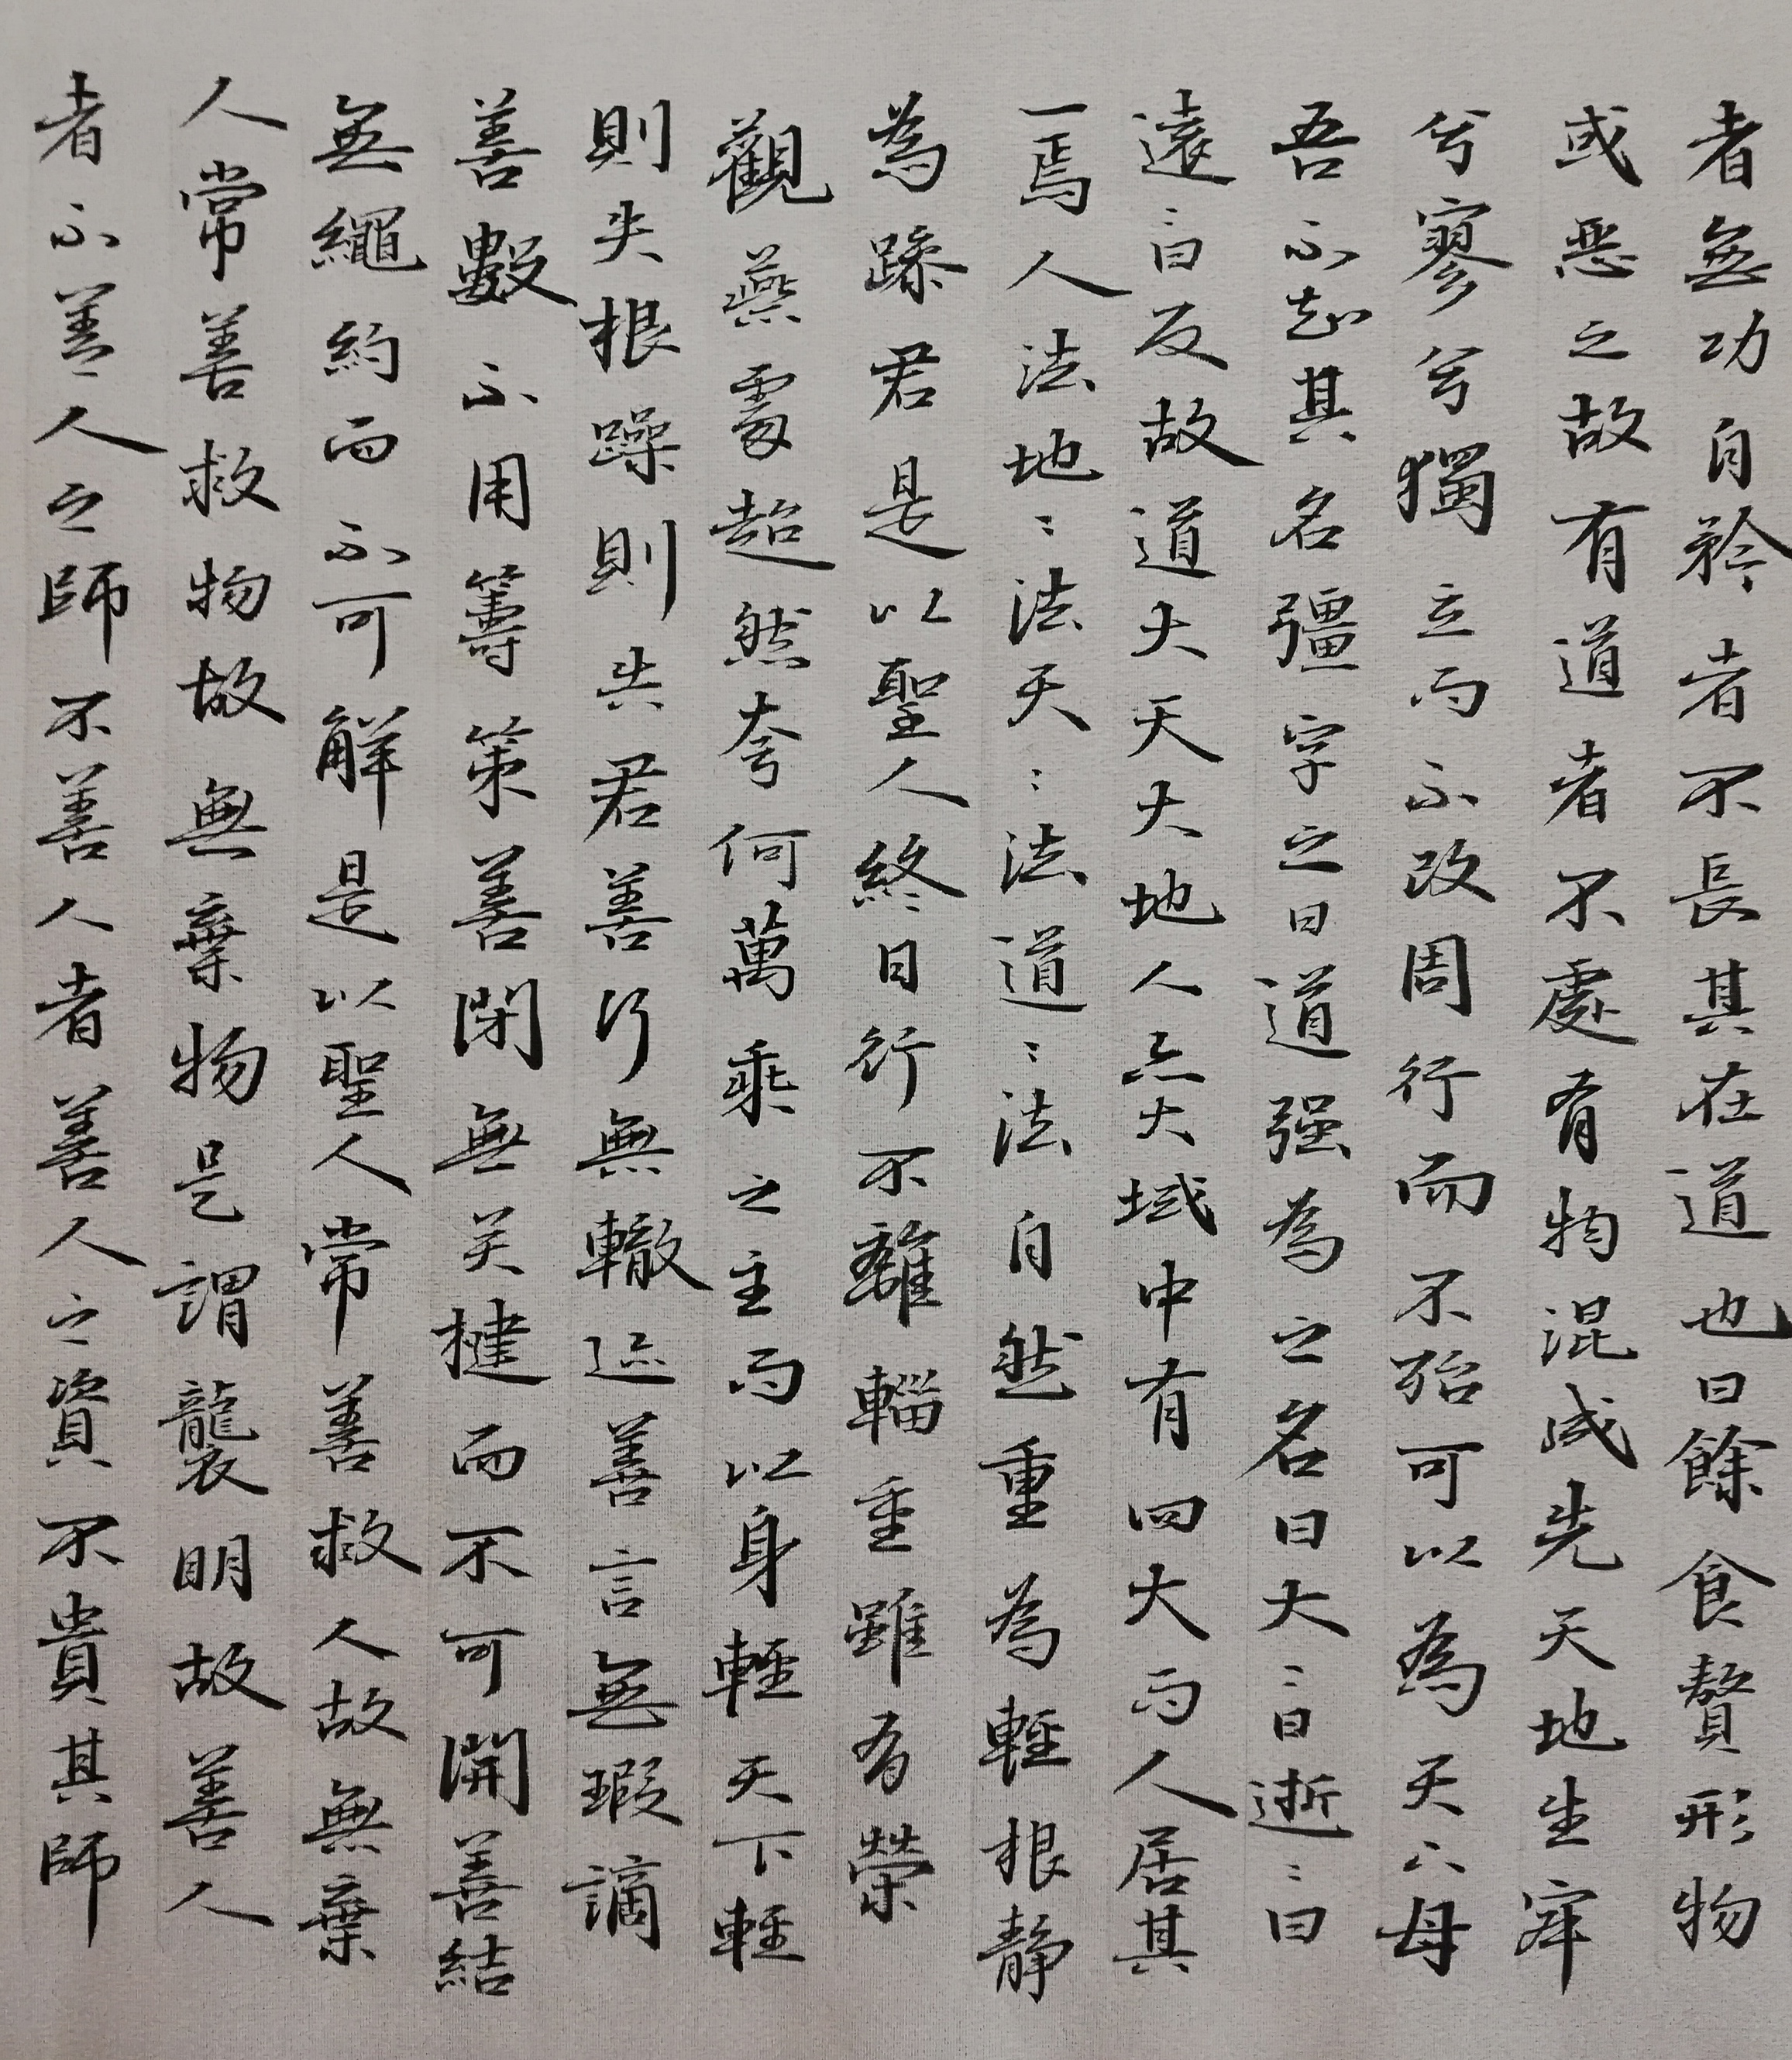 者無功自矜者不長其在道也曰餘食贅形物
或惡之故有道者不處有物混成先天地生寂
兮寥兮獨立而不改周行而不殆可以為天下母
吾不知其名彊字之曰道强為之名曰大〻曰逝〻曰
遠〻曰反故道大天大地人亦大域中有四大而人居其
一焉人法地〻法天〻法道〻法自然重為輕根静
為躁君是以聖人終日行不離輜重雖有榮
觀燕處超然夸何萬乘之主而以身輕天下輕
則失根躁則失君善行無轍迹善言無瑕謫
善數不用籌策善閉無关楗而不可開善結
無繩約而不可解是以聖人常善救人故無棄
人常善救物故無棄物是謂襲明故善人
者不善人之師不善人者善人之資不貴其師